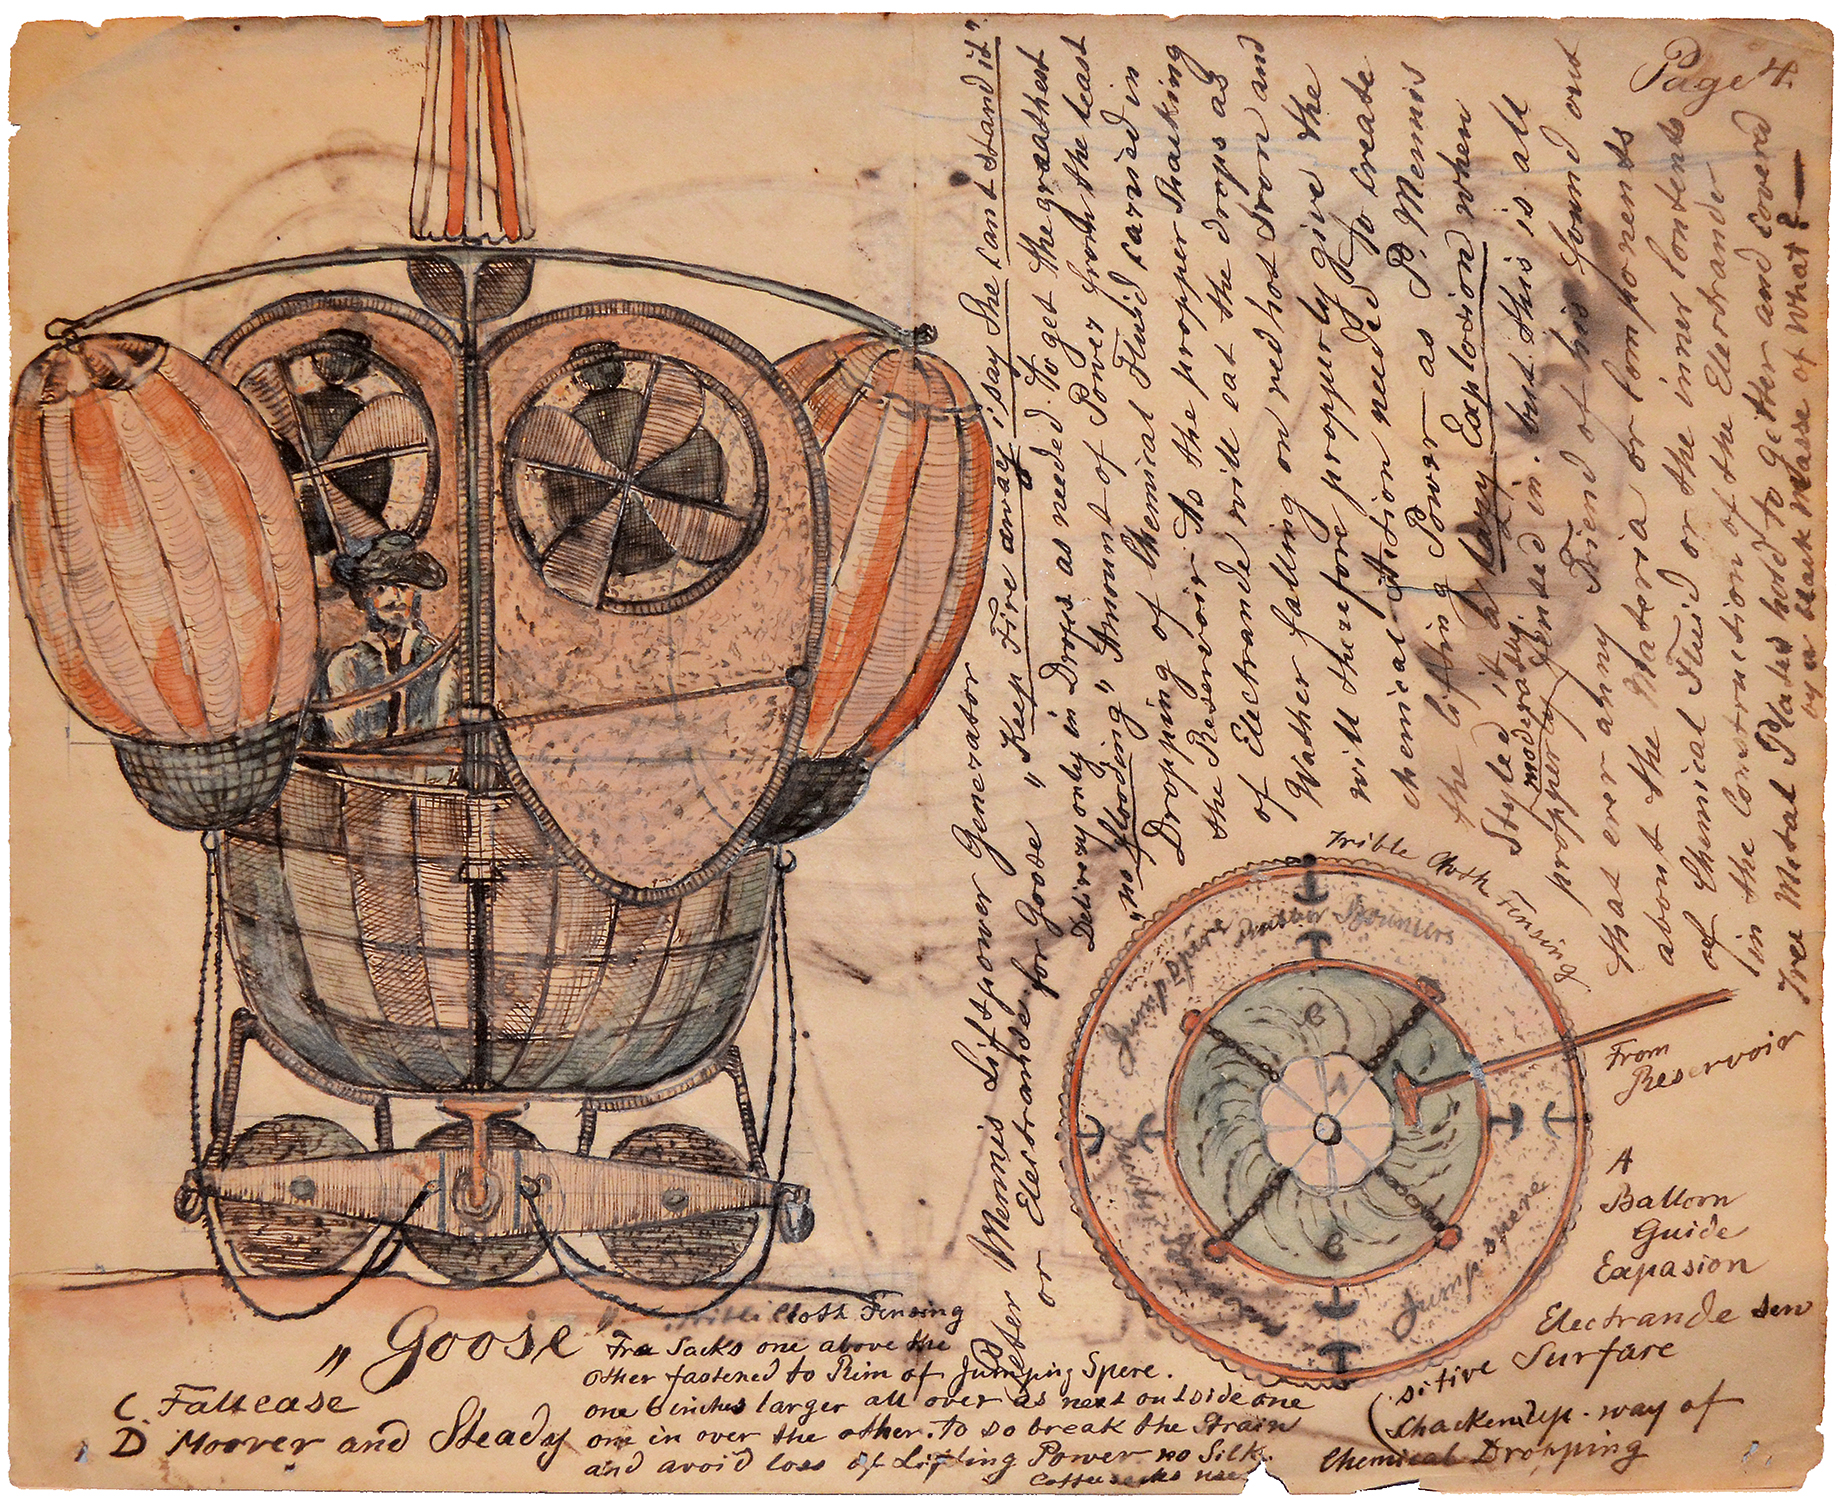 Page 4.
Peter Mennis Liftpower Generator "Keep Fire away i say She cant stand it".
or Electrande for Goose
Delivery only in Drops as needed. To get the greathest
"no flooding" Amount of Power from the least
Dropping of Chemical Fluid carried in
the Reservoir. As the propper Shacking
of Electrande will eat the drops as
Wather falling on red hot Iron and
will therefore propperly give the
chemical Action needed To create
the lifting Power as P. Mennis
Styled it a lazy Explosion when
moderately
propperly Jented in. but this is all
that ever anny Friend of his found out
about the Materia or Componends
of Chemical Fluid or the inner Contents
in the Construction of the Electrande
Tree Metal Plates hold to gether and coverd
by a black Masse of What?
Trible Cloth Fensing
Jump Spere Rubber Bouncers
C
C
Jump spere
From
Reservoir
A
Balloon
Guide
Expasion
Electrande sen
sitive Surfare
(Shackendup. way of
Chemical Dropping
"Goose"
C. Faltcase
D Moover and Steady
Cloth Fensing
Tra Sacks one above the
other fastened to Rim of Jumping Spere.
one 6 inches larger all over as next outside one
one in over the other. To so break the Strain
and avoid loss of Lifting Power no Silk.